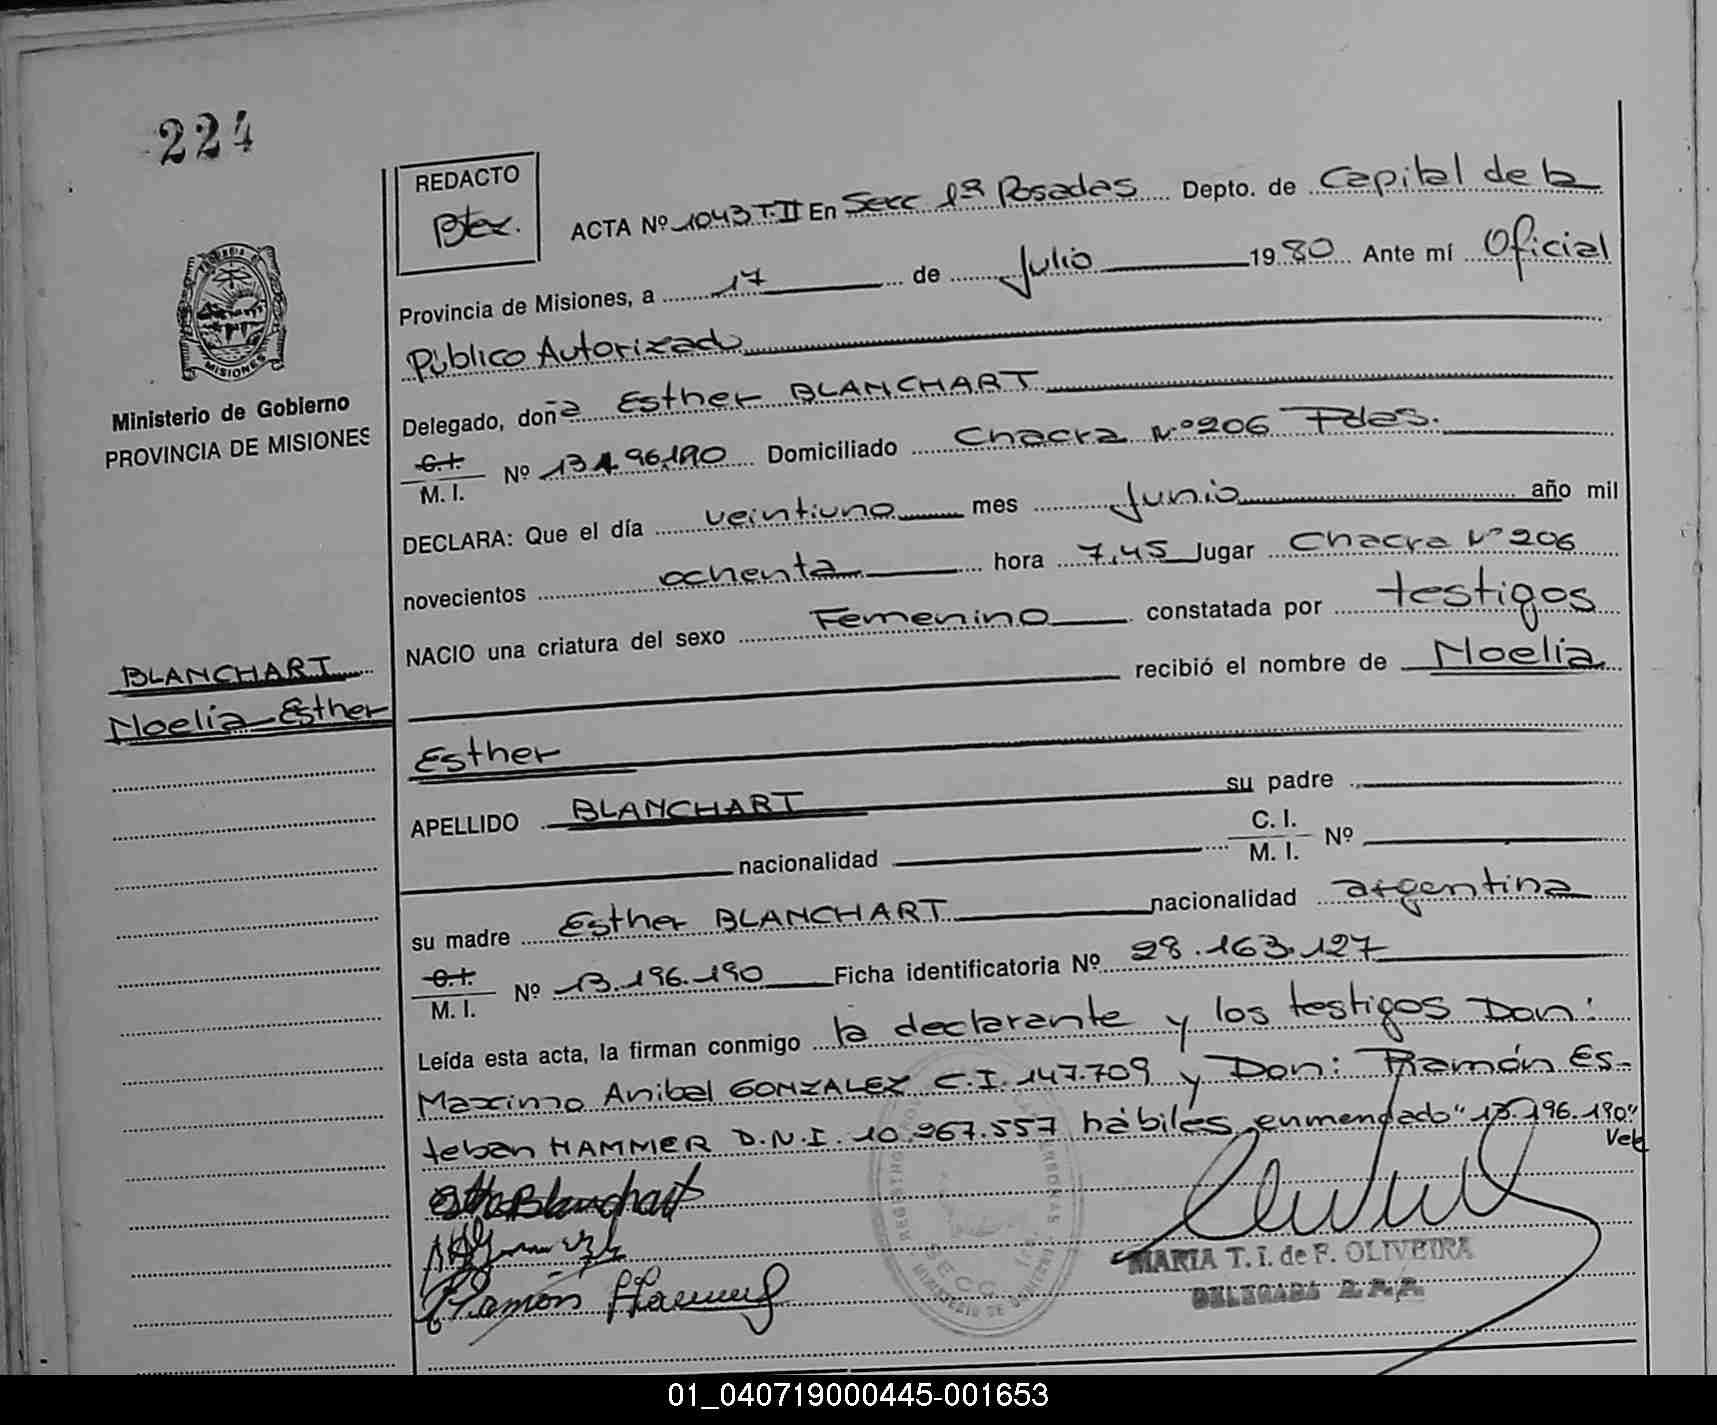 224
REDACTO
ACTA Nº 1043 T.II En Secc 1ª Posadas Depto. de Capital de la
Provincia de Misiones, a 17 de Julio 1980 Ante mí Oficial
Público Autorizado
MISIONES
Ministerio de Gobierno
PROVINCIA DE MISIONES
Delegado, doña Esther BLANCHART
C.I.
M. I. Nº 13.196.190 Domiciliado Chacra Nº 206 Pdas.
DECLARA: Que el día veintiuno mes Junio año mil
novecientos ochenta hora 7,45 lugar Chacra Nº 206
NACIO una criatura del sexo Femenino constatada por testigos
BLANCHART
Noelia Esther
recibió el nombre de Noelia
Esther
APELLIDO BLANCHART su padre
nacionalidad C. I.
M. I. Nº
su madre Esther BLANCHART nacionalidad argentina
C.I.
M. I. Nº 13.196.190 Ficha identificatoria Nº 28.163.127
Leída esta acta, la firman conmigo la declarante y los testigos Don:
Maximo Anibal GONZALEZ C.I. 147.709 y Don: Ramón Es-
teban HAMMER D.N.I. 10.967.557 hábiles enmendado "13.196.190"
Vale
Esther Blanchart
Ramón Hammer
REGISTRO PERSONAS
SECC. 1ra.
MINISTERIO DE GOBIERNO
MARIA T. I. de F. OLIVEIRA
DELEGADA R.P.P.
01_040719000445-001653